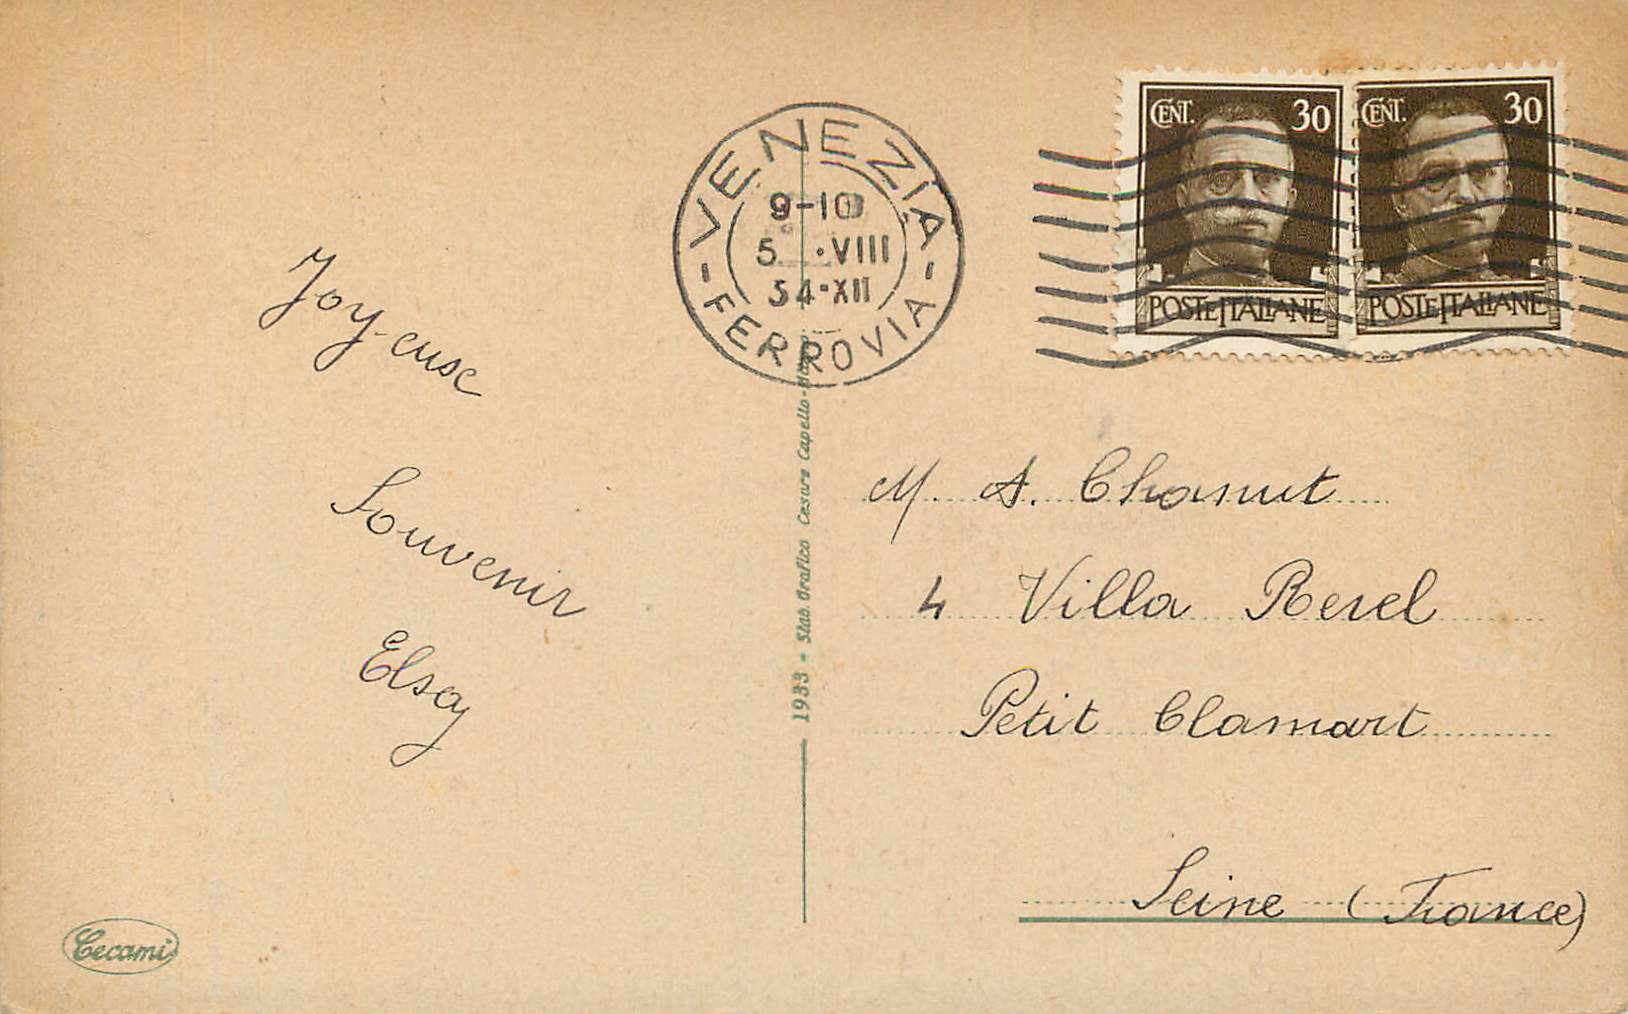 VENEZIA
9-10
5 ·VIII
34·XII
-FERROVIA-
CENT. 30
POSTE ITALIANE
CENT. 30
POSTE ITALIANE
Joyeuse
Souvenir
Elsay
M. A. Chanut
4 Villa Rerel
Petit Clamart
Seine (France)
1933 - Stab. Grafico Cesare Capello -
Cecami